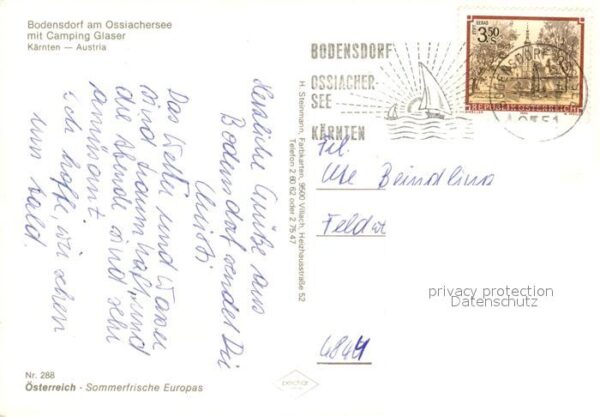 Bodensdorf am Ossiachersee
mit Camping Glaser
Kärnten — Austria
Herzliche Grüße aus
Bodensdorf sendet Dir
Christi
Das Wetter und Wasser
sind traumhaft, und
die Abende sind sehr
amüsant.
Ich hoffe, wir sehen
uns bald.
Nr. 288
Österreich - Sommerfrische Europas
H. Steinmann, Farbkarten, 9500 Villach, Heizhausstraße 52
Telefon 2 60 62 oder 2 75 47
BODENSDORF
OSSIACHER-
SEE
KÄRNTEN
3,50
S
REPUBLIK ÖSTERREICH
Ute
privacy protection
Datenschutz